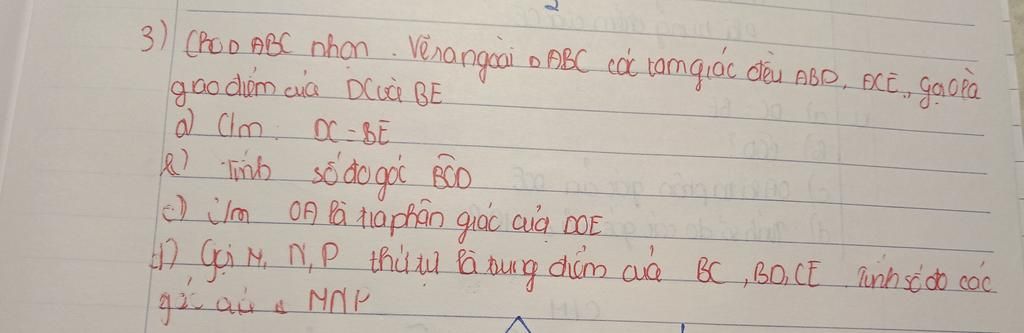 3) Cho Δ ABC nhọn. Vẽ ra ngoài Δ ABC các tam giác đều ABD, ACE, gọi O là
giao điểm của DC và BE
a) C/m: DC = BE
b) Tính số đo góc BOD
c) C/m OA là tia phân giác của DOE
d) Gọi M, N, P thứ tự là trung điểm của BC, BD, CE. Tính số đo các
góc của Δ MNP